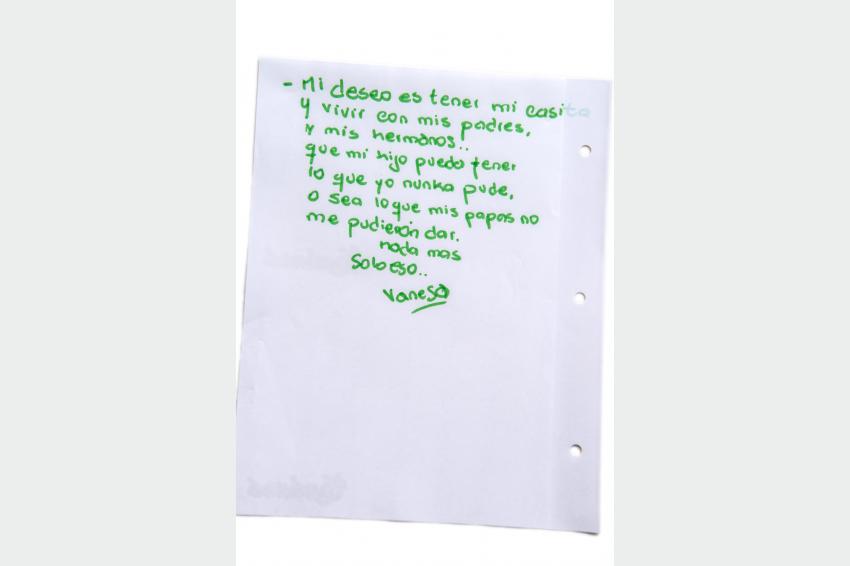 - Mi deseo es tener mi casita
y vivir con mis padres,
y mis hermanos..
que mi hijo pueda tener
lo que yo nunka pude,
o sea lo que mis papas no
me pudierón dar.
nada mas
Solo eso..
Vanesa